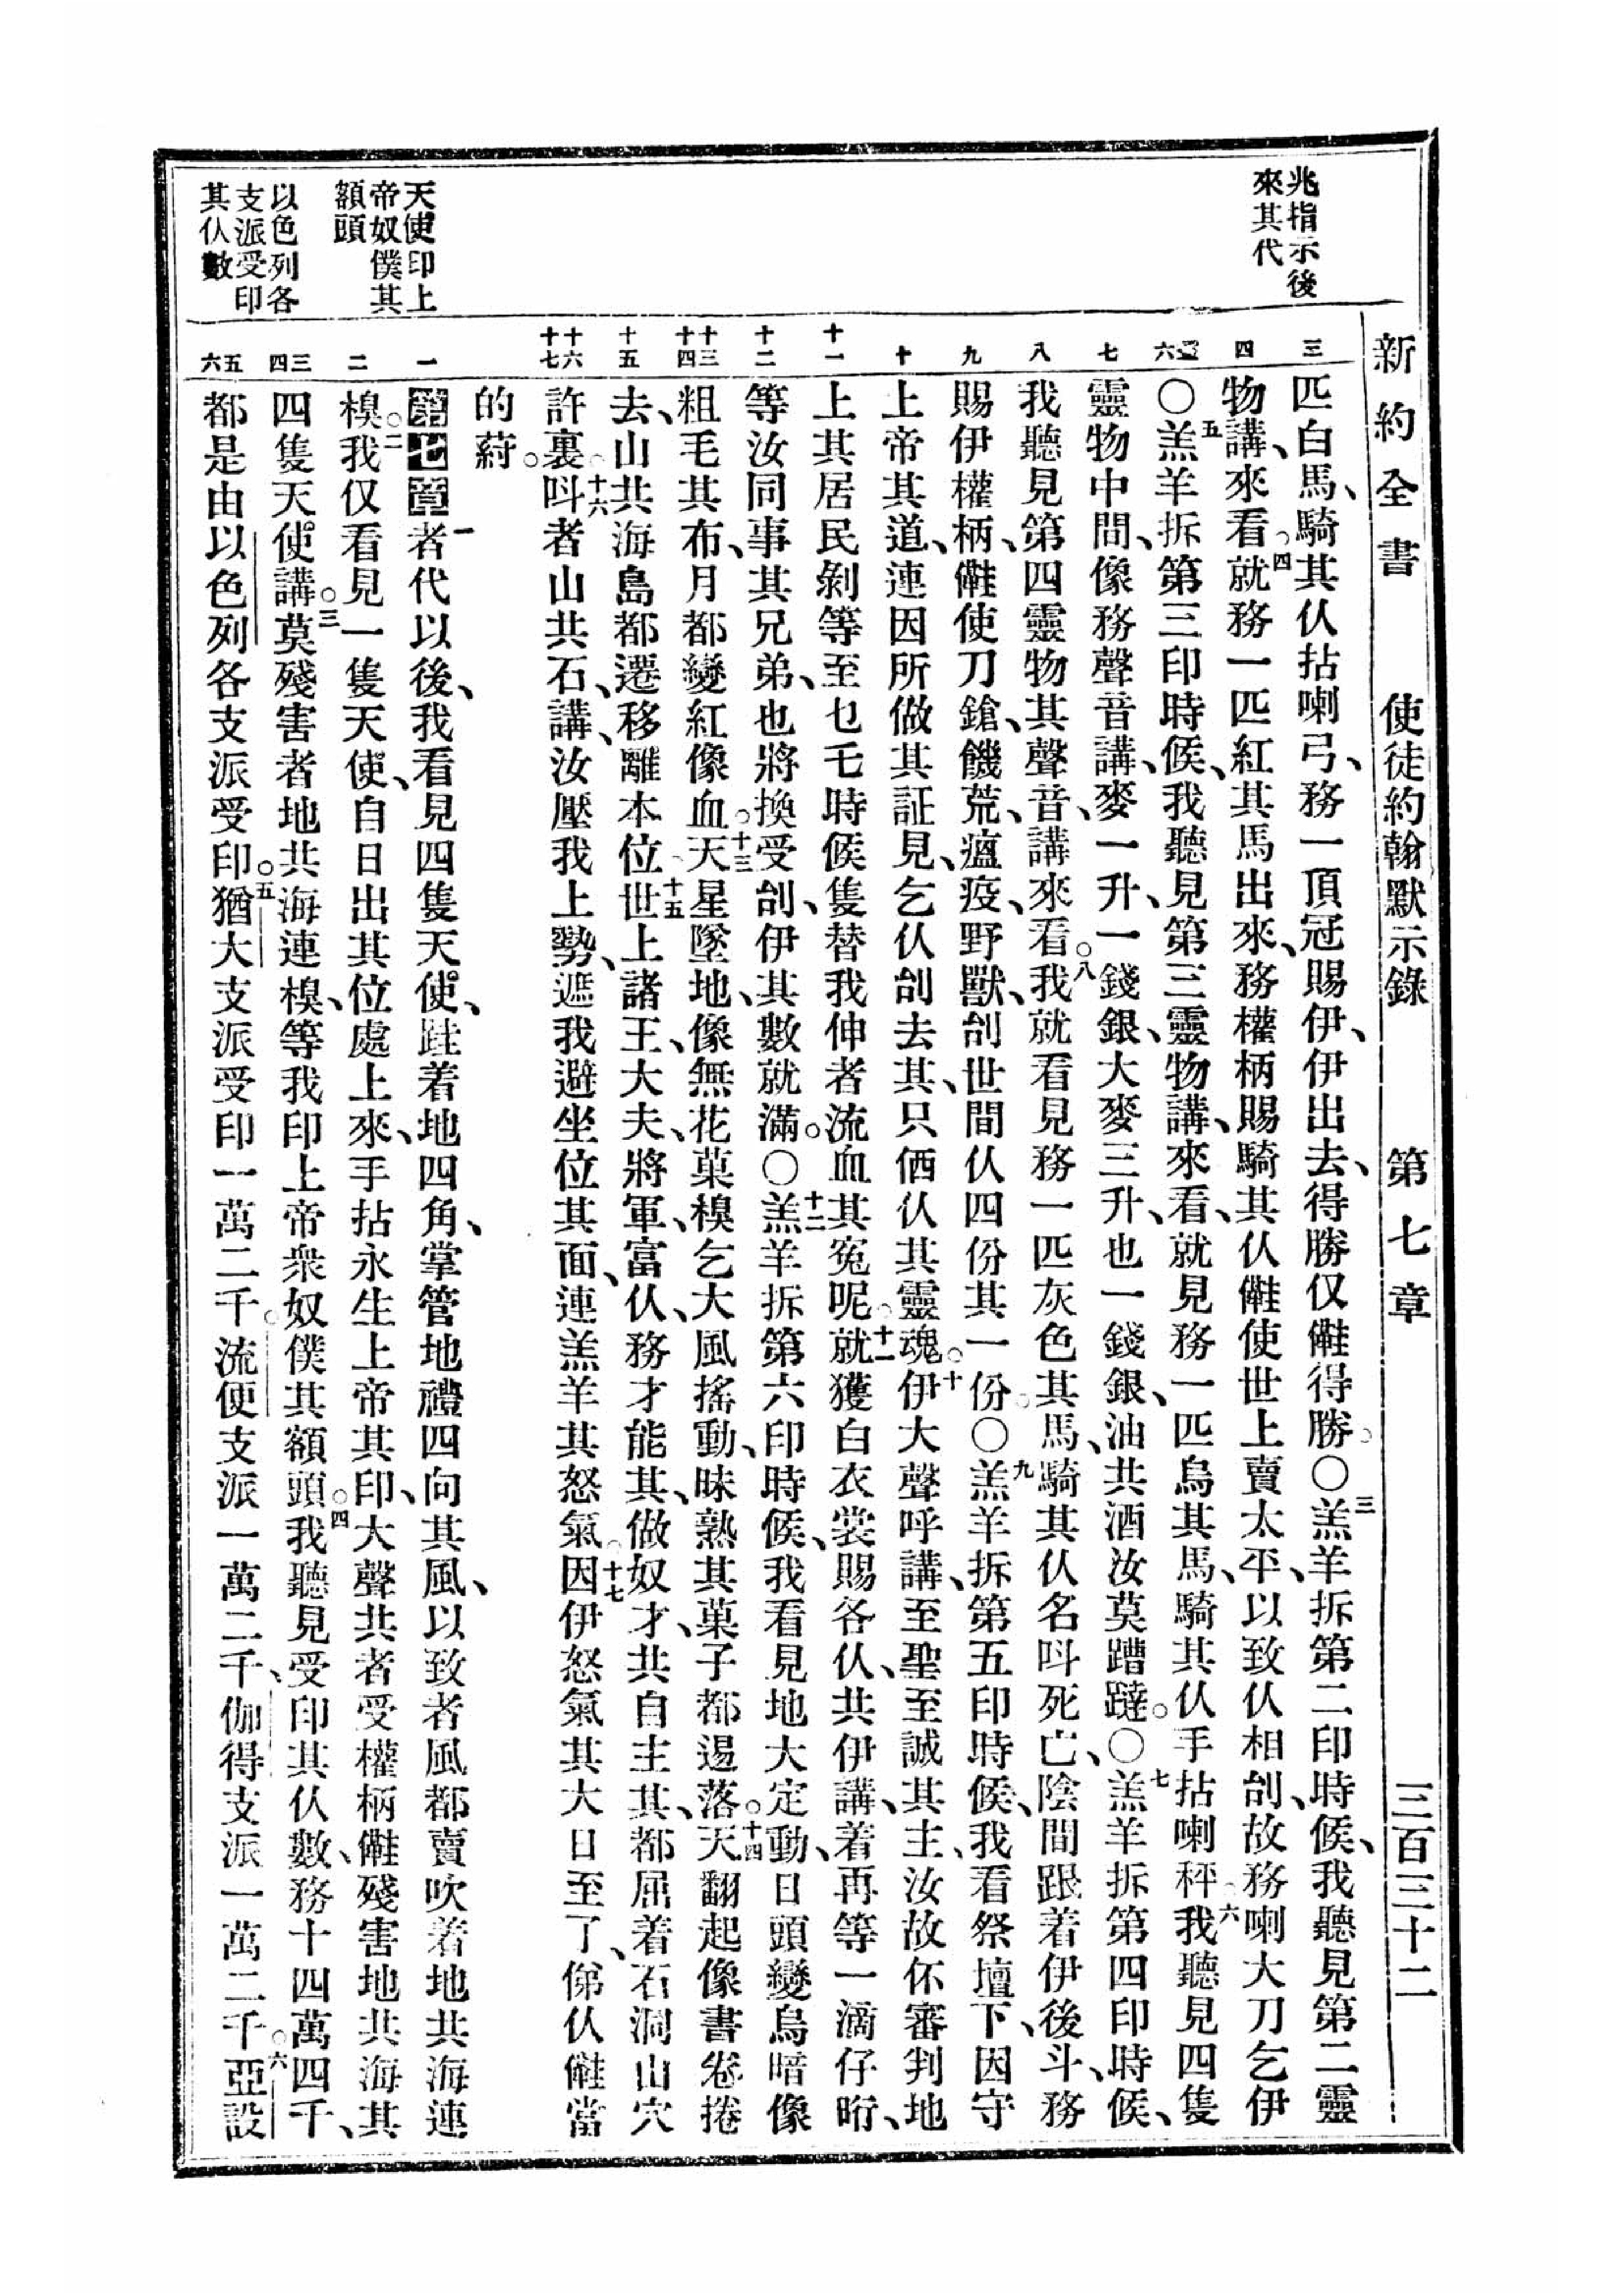 新約全書　使徒約翰默示錄　第七章　三百三十二
兆指示後
來其代
天使印上
帝奴僕其
額頭
以色列各
支派受印
其仈數
三
四
五六
七
八
九
十
十一
十二
十三十四
十五
十六十七
一
二
三四
五六
匹白馬、騎其仈拈喇弓、務一頂冠賜伊、伊出去、得勝仅𠆧得勝。○三羔羊拆第二印時候、我聽見第二靈
物講、來看。四就務一匹紅其馬出來、務權柄賜騎其仈𠆧使世上賣太平、以致仈相刣、故務喇大刀乞伊
○五羔羊拆第三印時候、我聽見第三靈物講、來看、就見務一匹烏其馬、騎其仈手拈喇秤。六我聽見四隻
靈物中間、像務聲音講、麥一升、一錢銀、大麥三升、也一錢銀、油共酒汝莫蹧躂。○七羔羊拆第四印時候、
我聽見第四靈物其聲音、講來看。八我就看見務一匹灰色其馬、騎其仈名呌死亡、陰間跟着伊後斗、務
賜伊權柄、𠆧使刀鎗、饑荒、瘟疫、野獸、刣世間仈四份其一份。○九羔羊拆第五印時候、我看祭壇下、因守
上帝其道、連因所做其証見、乞仈刣去其、只㐰仈其靈魂。十伊大聲呼講、至聖至誠其主、汝故伓審判地
上其居民剝等至乜乇時候、隻替我伸者流血其寃呢。十一就獲白衣裳賜各仈、共伊講、着再等一滴仔昕、
等汝同事其兄弟、也將換受刣、伊其數就滿。○十二羔羊拆第六印時候、我看見地大定動、日頭變烏暗像
粗毛其布、月都變紅像血。十三天星墜地、像無花菓槺乞大風搖動、昧熟其菓子都逿落。十四天翻起像書卷捲
去、山共海島都遷移離本位。十五世上諸王、大夫、將軍、富仈、務才能其、做奴才、共自主其、都屈着石洞山穴
許裏。十六呌者山共石、講、汝壓我上勢、遮我避坐位其面、連羔羊其怒氣。十七因伊怒氣其大日至了、俤仈𠆧當
的葤。
第七章一者代以後、我看見四隻天使、跬着地四角、掌管地禮四向其風、以致者風都賣吹着地共海連
槺。二我仅看見一隻天使、自日出其位處上來、手拈永生上帝其印、大聲共者受權柄𠆧殘害地共海其
四隻天使講。三莫殘害者地共海連槺、等我印上帝衆奴僕其額頭。四我聽見受印其仈數、務十四萬四千、
都是由以色列各支派受印。五猶大支派受印一萬二千。流便支派一萬二千、伽得支派一萬二千。六亞設